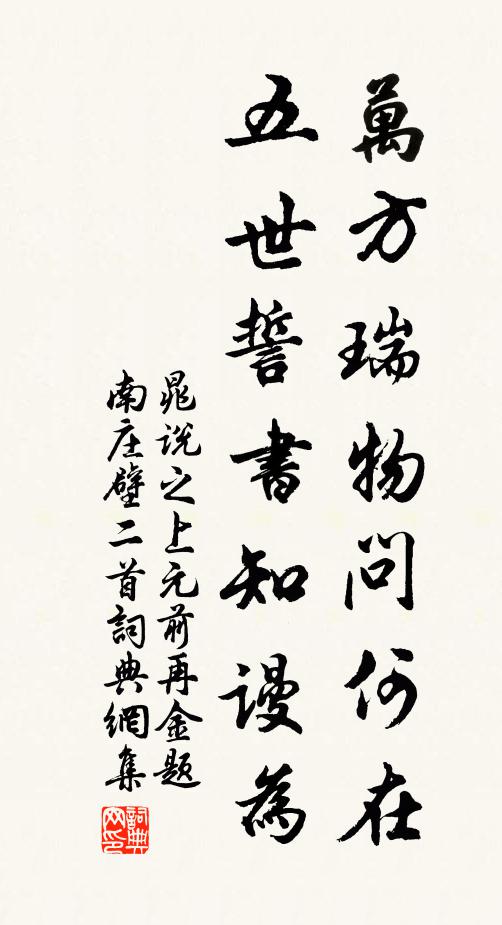 萬方瑞物問何在
五世誓書知謾為
晁說之上元前再金題
南庄壁二首詞典網集
詞典網印